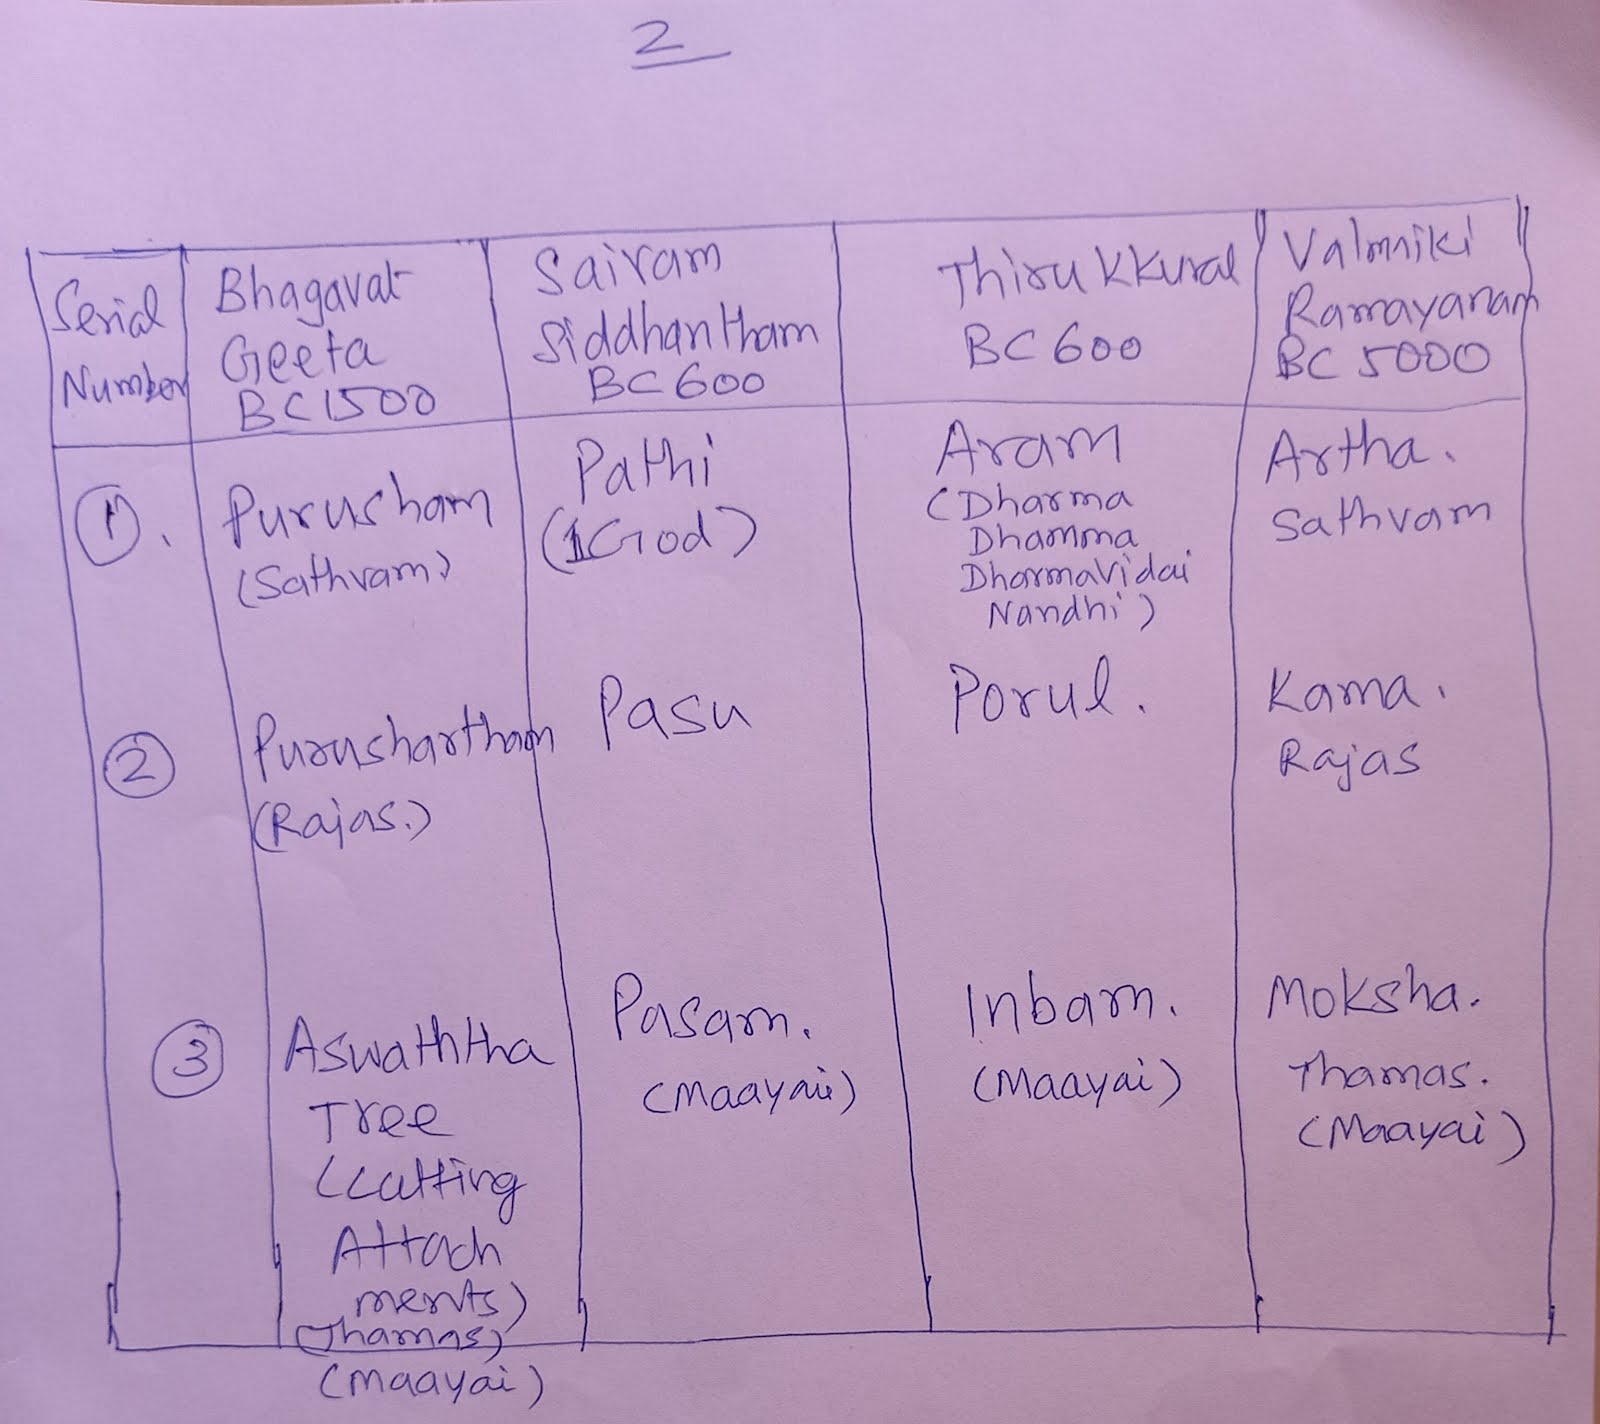 2
Serial
Number
Bhagavat
Geeta
BC 1500
Sairam
Siddhantham
BC 600
Thirukkural
BC 600
Valmiki
Ramayanam
BC 5000
1.
Purusham
(Sathvam)
Pathi
(1God)
Aram
(Dharma
Dhamma
DharmaVidai
Nandhi)
Artha.
Sathvam
2
Purushartham
(Rajas.)
Pasu
Porul.
Kama.
Rajas
3
Aswaththa
Tree
(Cutting
Attach
ments)
(Thamas)
(Maayai)
Pasam.
(Maayai)
Inbam.
(Maayai)
Moksha.
Thamas.
(Maayai)